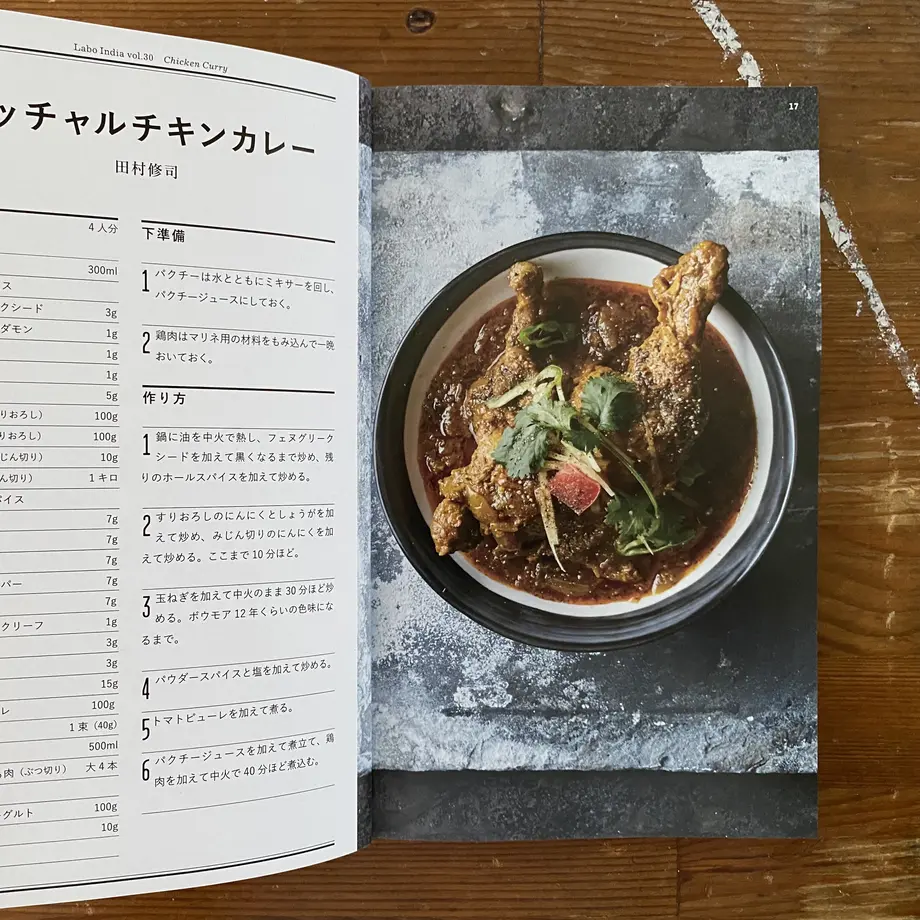 Labo India vol.30 Chicken Curry
ッチャルチキンカレー
田村修司
4人分
300ml
ス
クシード 3g
ダモン 1g
1g
1g
5g
りおろし） 100g
りおろし） 100g
じん切り） 10g
ん切り） 1キロ
パイス
7g
7g
7g
パー 7g
7g
クリーフ 1g
3g
3g
15g
レ 100g
1束（40g）
500ml
肉（ぶつ切り） 大4本
グルト 100g
10g
下準備
1 パクチーは水とともにミキサーを回し、
パクチージュースにしておく。
2 鶏肉はマリネ用の材料をもみ込んで一晩
おいておく。
作り方
1 鍋に油を中火で熱し、フェヌグリーク
シードを加えて黒くなるまで炒め、残
りのホールスパイスを加えて炒める。
2 すりおろしのにんにくとしょうがを加
えて炒め、みじん切りのにんにくを加
えて炒める。ここまで10分ほど。
3 玉ねぎを加えて中火のまま30分ほど炒
める。ボウモア12年くらいの色味にな
るまで。
4 パウダースパイスと塩を加えて炒める。
5 トマトピューレを加えて煮る。
6 パクチージュースを加えて煮立て、鶏
肉を加えて中火で40分ほど煮込む。
17